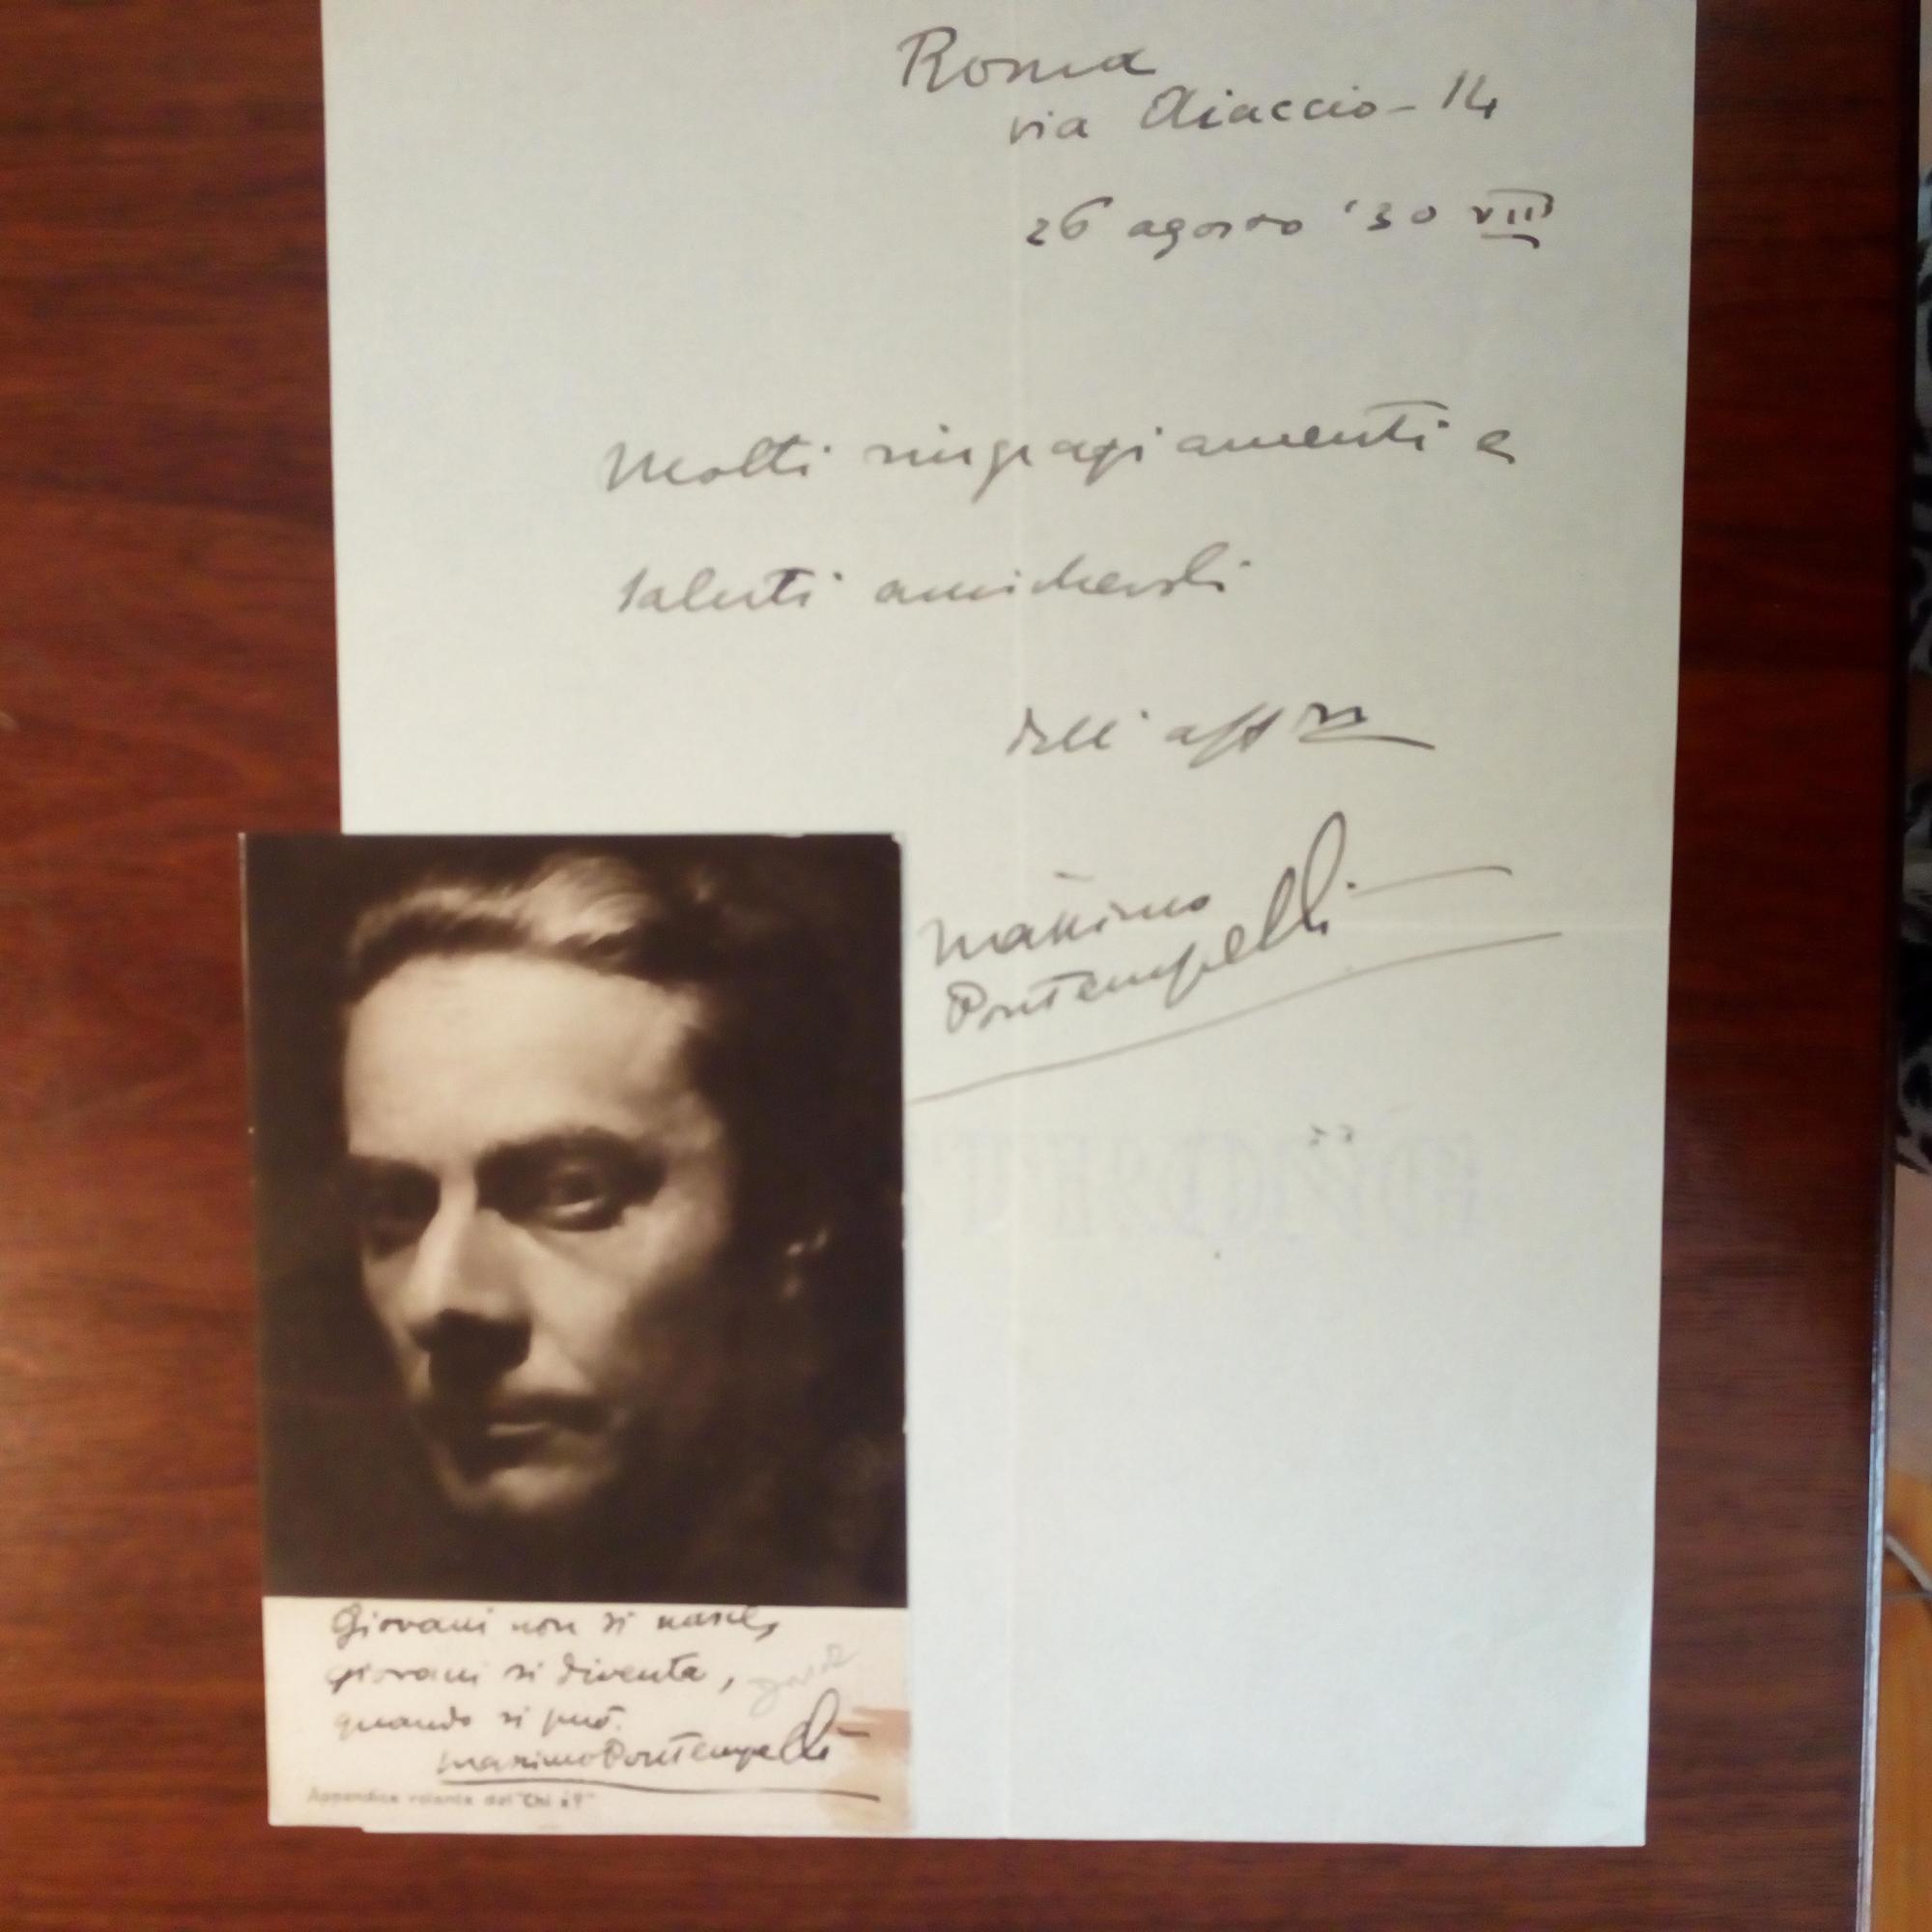 Roma
via Aiaccio - 14
26 agosto '30 VIII
Molti ringraziamenti e
saluti amichevoli
dell'aff mo
Massimo
Bontempelli
Giovani non si nasce,
giovani si diventa,
quando si può.
Massimo Bontempelli
Appendice volante del "Chi è?"